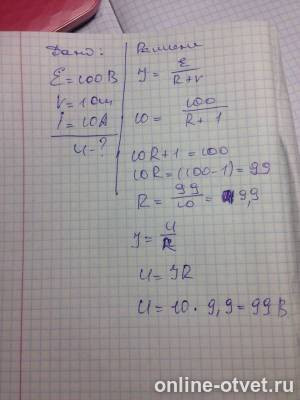 Дано:
Ɛ = 100В
r = 1 Ом
I = 10А
U - ?
Решение
J = Ɛ / R+r
10 = 100 / R+1
10R+1 = 100
10R = (100-1) = 99
R = 99 / 10 = 9,9
J = U / R
U = JR
U = 10 · 9,9 = 99 В
online-otvet.ru